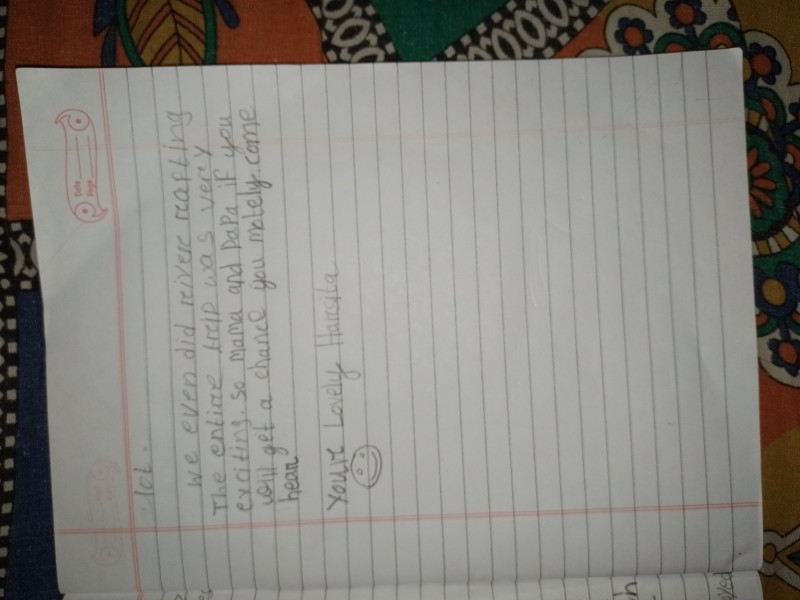 Date
Page
lot.
we even did rivere reafting
The entire trip was very
exciting. so mama and papa if you
will get a chance you mately come
hear
Youre Lovely Harsita